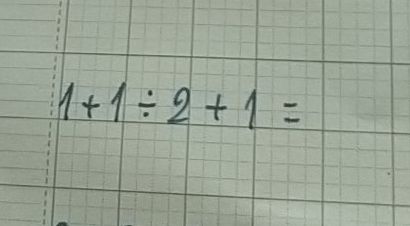 1+1÷2+1=